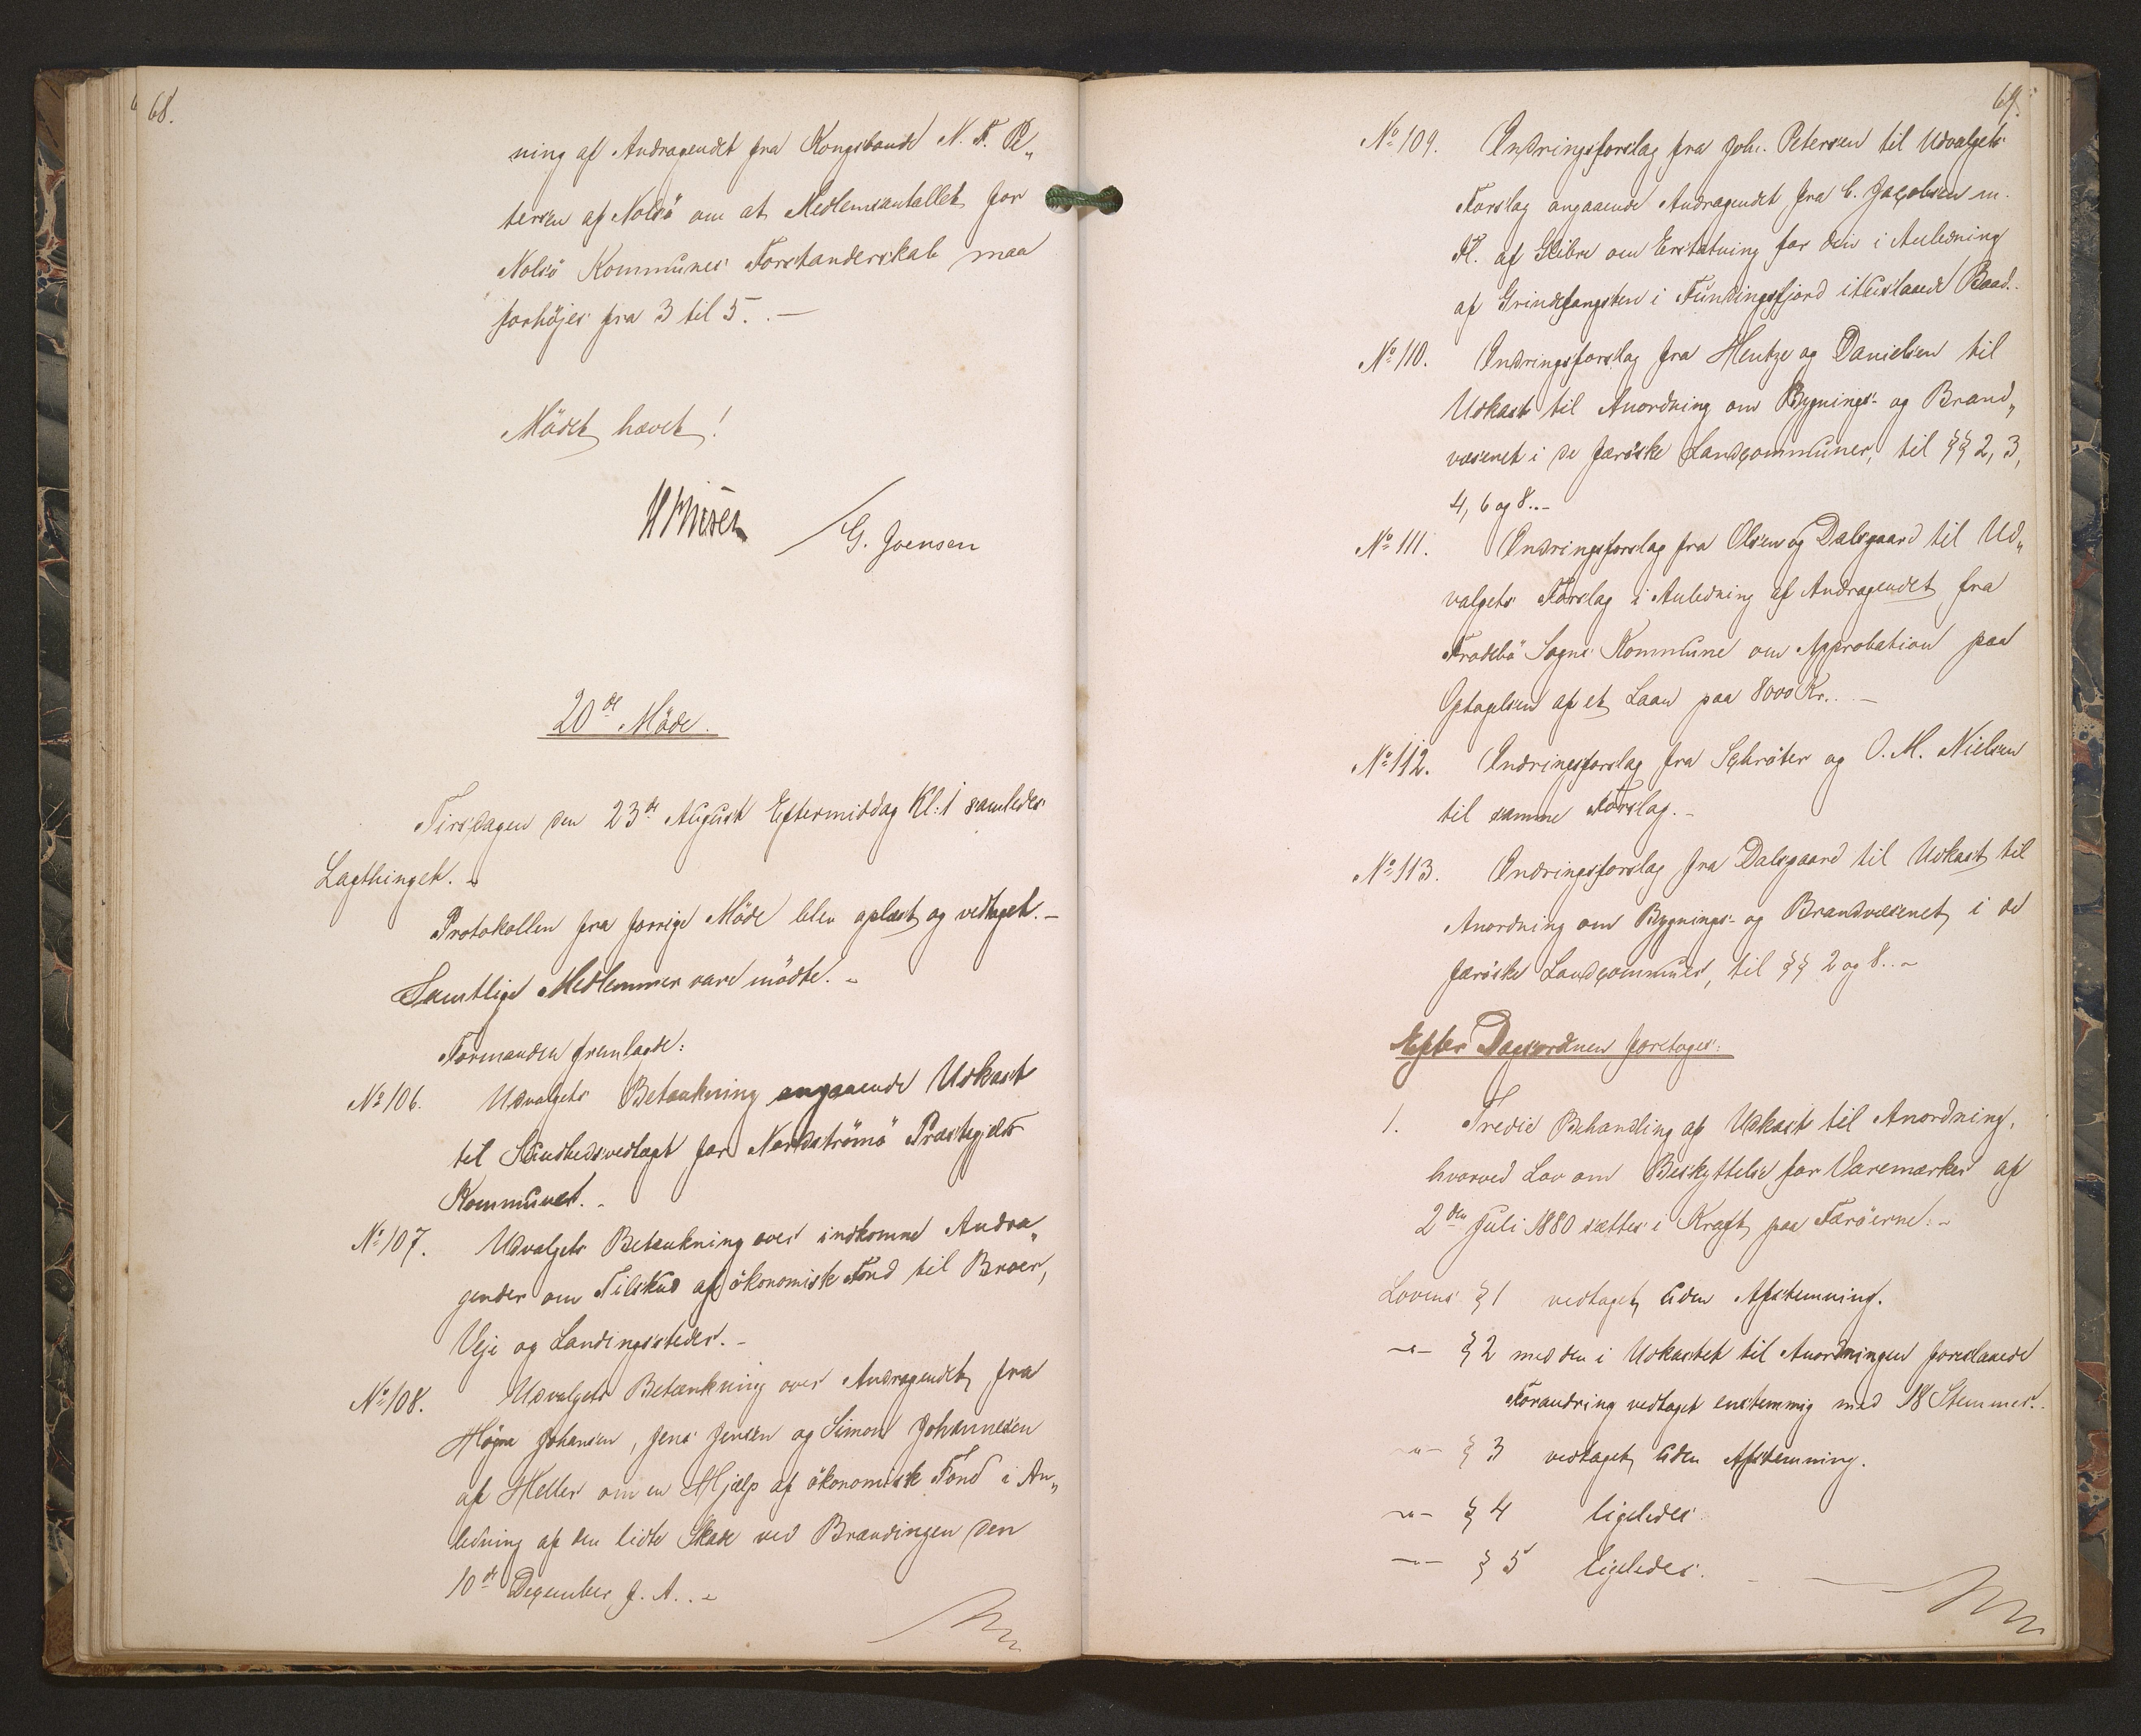 68.
ning af Andragendet fra Kongsbonde N. F. Pe„
tersen af Nolsö om at Medlemsantallet for
Nolsö Kommunes Forstanderskab maa
forhöjes fra 3 til 5. . —
Mödet hævet!
G. Joensen
20de Möde.
Tirsdagen den 23de August Eftermiddag Kl: 1 samledes
Lagthinget. –
Protokollen fra forrige Möde blev oplæst og vedtaget. –
Samtlige Medlemmer vare mödte. –
Formanden fremlagde:
No 106. Udvalgets Betænkning angaaende Udkast
til Sundhedsvedtægt for Nordströmö Præstegjelds
Kommuner. –
No 107. Udvalgets Betænkning over indkomne Andra„
gender om Tilskud af ökonomisk Fond til Broer,
Veje og Landingssteder. –
No 108. Udvalgets Betænkning over Andragendet fra
Högna Johansen, Jens Jensen og Simon Johannesen
af Heller om en Hjælp af ökonomisk Fond i An„
ledning af den lidte Skade ved Brændingen den
10de December f. A. . –
69.
No 109. Ændringsforslag fra Joh. Petersen til Udvalgets
Forslag angaaende Andragendet fra C. Jacobsen m.
Fl. af Glibre om Erstatning for den i Anledning
af Grindefangsten i Fundingsfjord ituslaaede Baad. .
No 110. Ændringsforslag fra Hentze og Danielsen til
Udkast til Anordning om Bygnings- og Brand„
væsenet i de færöske Landcommuner, til §§ 2, 3,
4, 6 og 8. . –
No 111. Ændringsforslag fra Olsen og Dalsgaard til Ud„
valgets Forslag i Anledning af Andragendet fra
Frodebö Sogns Kommune om Approbation paa
Optagelsen af et Laan paa 8000 Kr. . –
No 112. Ændringsforslag fra Schröter og O. M. Nielsen
til samme Forslag. –
No 113. Ændringsforslag fra Dalsgaard til Udkast til
Anordning om Bygnings- og Brandvæsenet i de
færöske Landcommuner, til §§ 2 og 8. . –
Efter Dagsordenen foretoges:
1. Tredie Behandling af Udkast til Anordning,
hvorved Lov om Beskyttelse for Varemærker af
2den Juli 1880 sættes i Kraft paa Færöerne. –
Lovens § 1 vedtaget uden Afstemning.
–"– § 2 med den i Udkastet til Anordningen foreslaaede
Forandring vedtaget enstemmig med 18 Stemmer. .
–"– § 3 vedtaget uden Afstemning.
–"– § 4 ligeledes.
–"– § 5 ligeledes. –